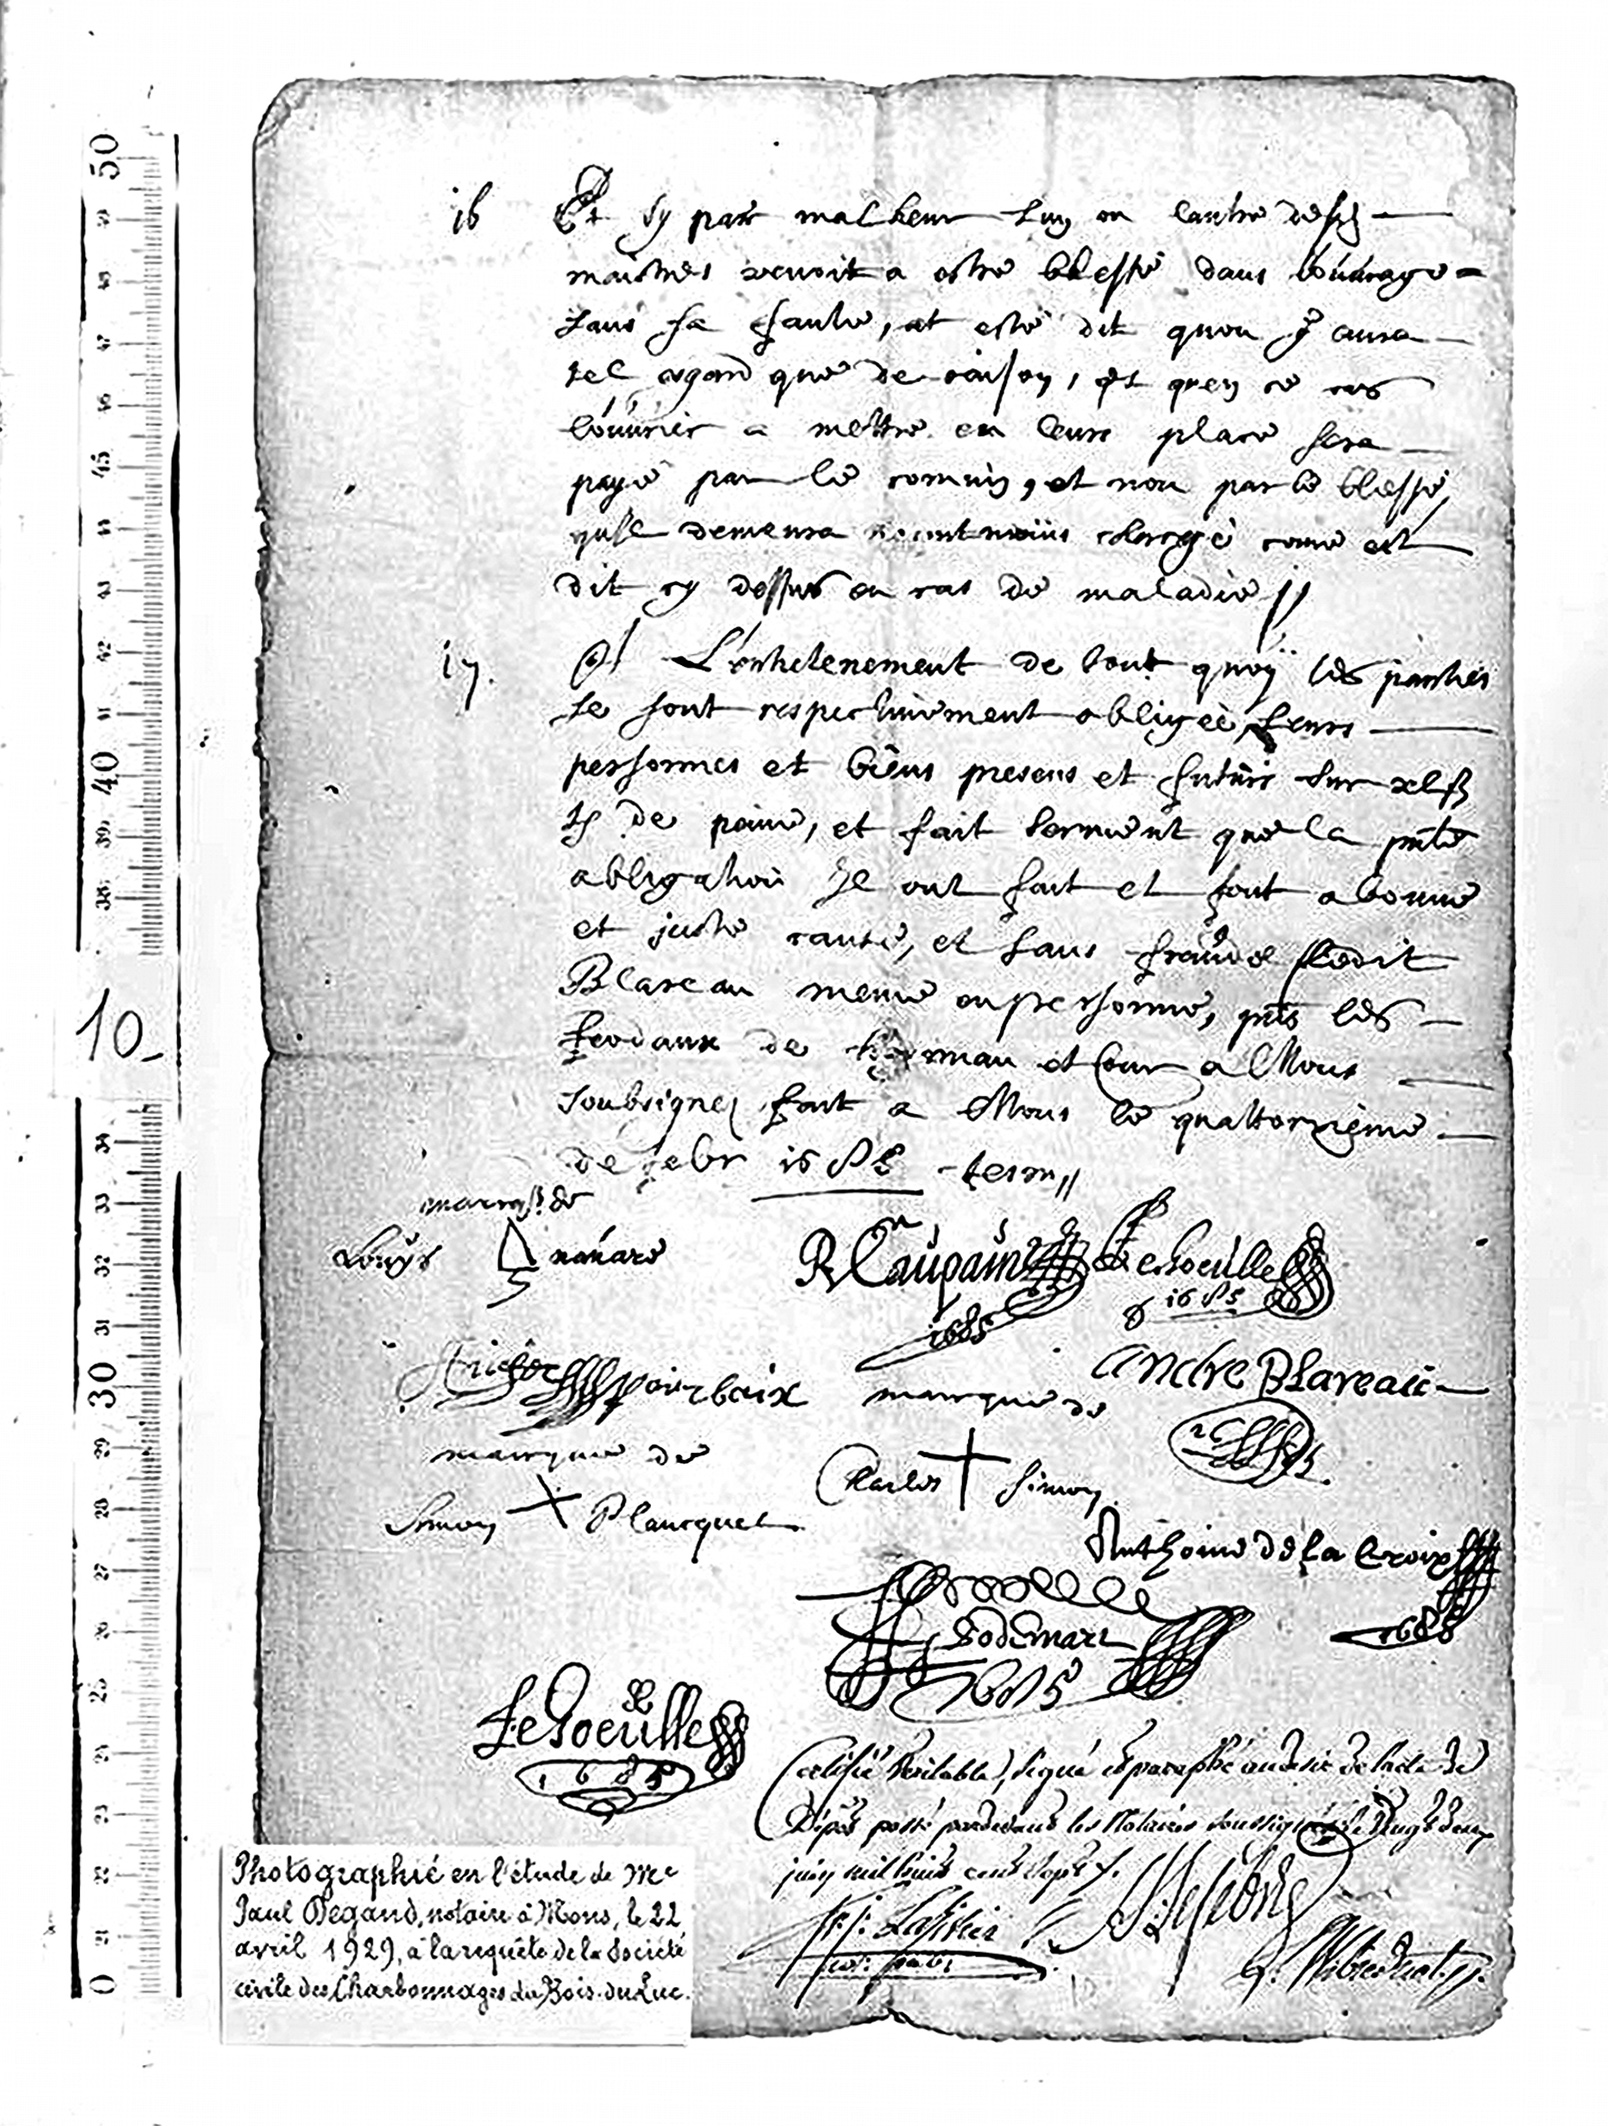 16 Et sy par malheur lun ou lautre desd
maistres venoit a estre blessé dans l'ouvrage
sans sa faute, at esté dit quon y aura
tel egard que de raison, et quen ce cas
l'ouvrier a mettre en leur place sera
payé par le comun, et non par le blessé
quil demeura neantmoins chargé come est
dit cy dessus en cas de maladie //
17. A L'entretenement de tout quoÿ les parties
se sont respectivement obligée leurs
personnes et biens presens et futurs sur
de peine, et fait serment que la pnte
obligation Il ont fait et font a bonne
et juste cause, et sans fraude ledit
Blareau meme en personne, pnts les
feodaux de et Cour a Mons
soubsignez fait a Mons le quattorzieme
de febr 1685 -
marcq de
Louys navare
R Caupain
1685
Le hoeulle
1685
pourbaix
Andre BLareau
marcque de
Charles Simon
marcque de
Simon Plancquet
Anthoine de la Croix
1685
Godemart
1685
LeHoeulle
1685
Certifié Veritable, signé et paraphé au desir de l'acte de
Dépôt passé pardevant les Notaires soussignés le Vingt deux
juin mil huit cent sept.
not: pub:
10_
Photographié en l'étude de Me
Paul Degand, notaire à Mons, le 22
avril 1929, à la requête de la Société
civile des Charbonnages du Bois-du-Luc.
50
40
30
0